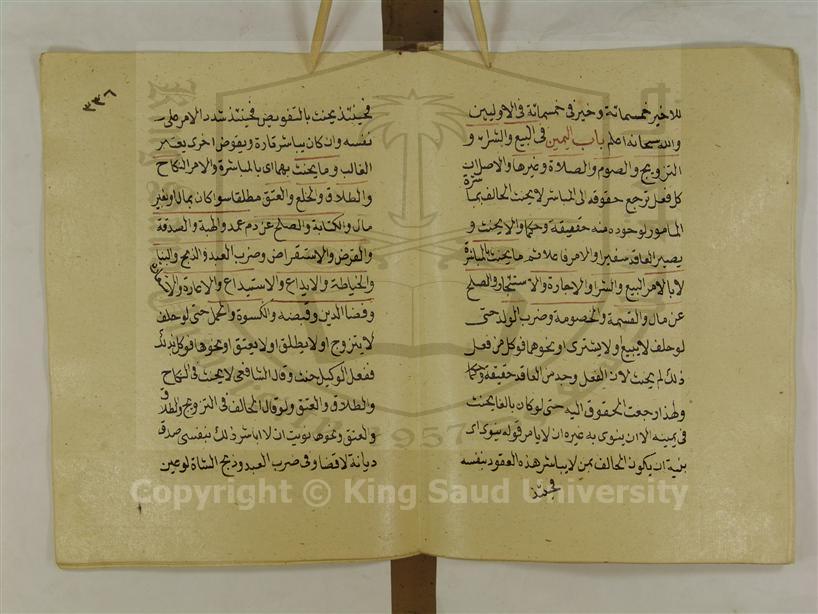 للاخير خمسمائة وخير في خمسمائة في الاوليين
والله سبحانه اعلم باب اليمين في البيع والشراء و
التزويج والصوم والصلاة وغيرها والاصل ان
كل فعل ترجع حقوقه الى المباشر لا يحنث الحالف بمباشرة
المامور لوجوده منه حقيقة وحكما والا يحنث و
يصير العاقد سفيرا والامر فاعلا ثم ما يحنث بالمباشرة
لا بالامر البيع والشرا والاجارة والاستئجار والصلح
عن مال والقسمة والخصومة وضرب الولد حتى
لو حلف لا يبيع او لا يشترى او نحوهما فوكل من فعل
ذلك لم يحنث لان الفعل وجد من العاقد حقيقة وحكما
ولهذا رجعت الحقوق اليه حتى لو كان بالغا يحنث
في يمينه الا ان ينوى به غيره ان لا يامر قوله سوى اى
بنية ان يكون الحالف ممن لا يباشر هذه العقود بنفسه
فحينئذ
٣٣٦
فحينئذ يحنث بالتفويض فحينئذ شدد الامر على
نفسه وان كان يباشر تارة ويفوض اخرى يعتبر
الغالب وما يحنث بهما اى بالمباشرة والامر النكاح
والطلاق والخلع والعتق مطلقا سوا كان بمال او بغير
مال والكتابة والصلح عن دم عمد والهبة والصدقة
والقرض والاستقراض وضرب العبد والذبح والبنا
والخياطة والايداع والاستيداع والاعارة والاستعارة
وقضا الدين وقبضه والكسوة والحمل حتى لو حلف
لا يتزوج او لا يطلق او لا يعتق او نحوها فوكل بذلك
ففعل الوكيل حنث وقال الشافعي لا يحنث في النكاح
والطلاق والعتق ولو قال الحالف في التزويج والطلاق
والعتق ونحوها نويت ان لا اباشر ذلك بنفسى صدق
ديانة لا قضا وفي ضرب العبد وذبح الشاة لو عين
Copyright © King Saud University
1957